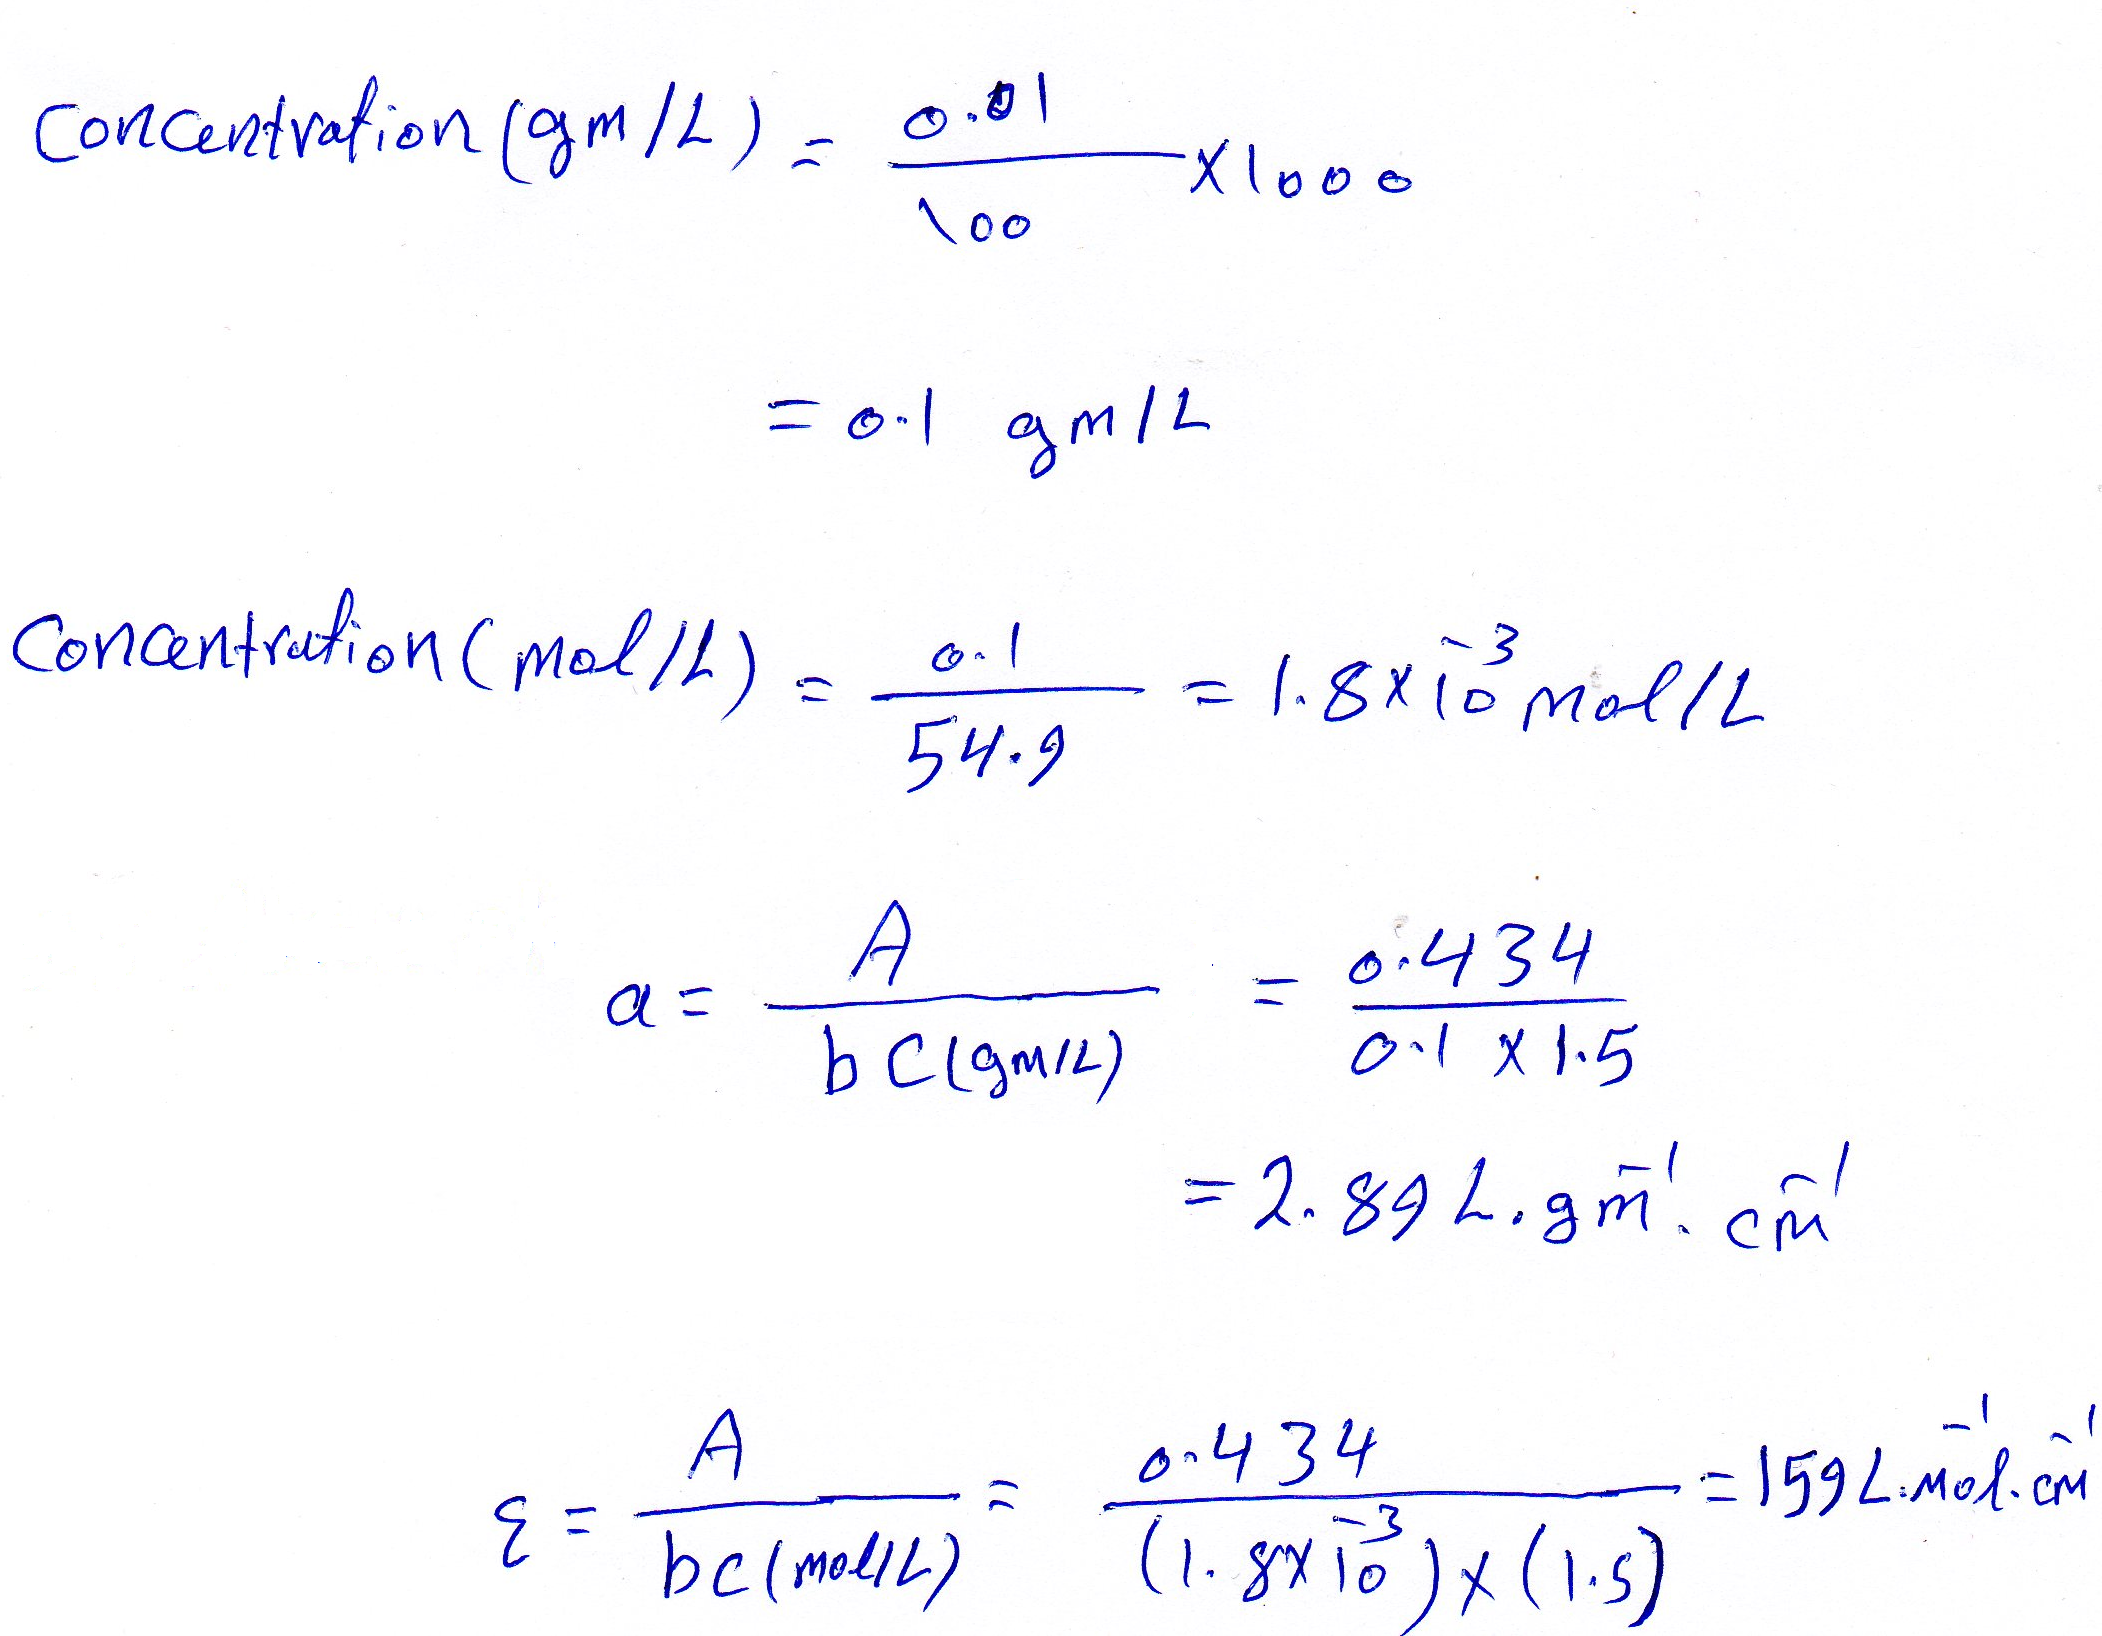 Concentration (gm/L) = 0.01/100 × 1000
= 0.1 gm/L
Concentration (mol/L) = 0.1/54.9 = 1.8×10⁻³ mol/L
a = A/bC(gm/L) = 0.434/0.1 × 1.5
= 2.89 L.gm⁻¹.cm⁻¹
ε = A/bC(mol/L) = 0.434/(1.8×10⁻³)×(1.5) = 159 L.mol⁻¹.cm⁻¹